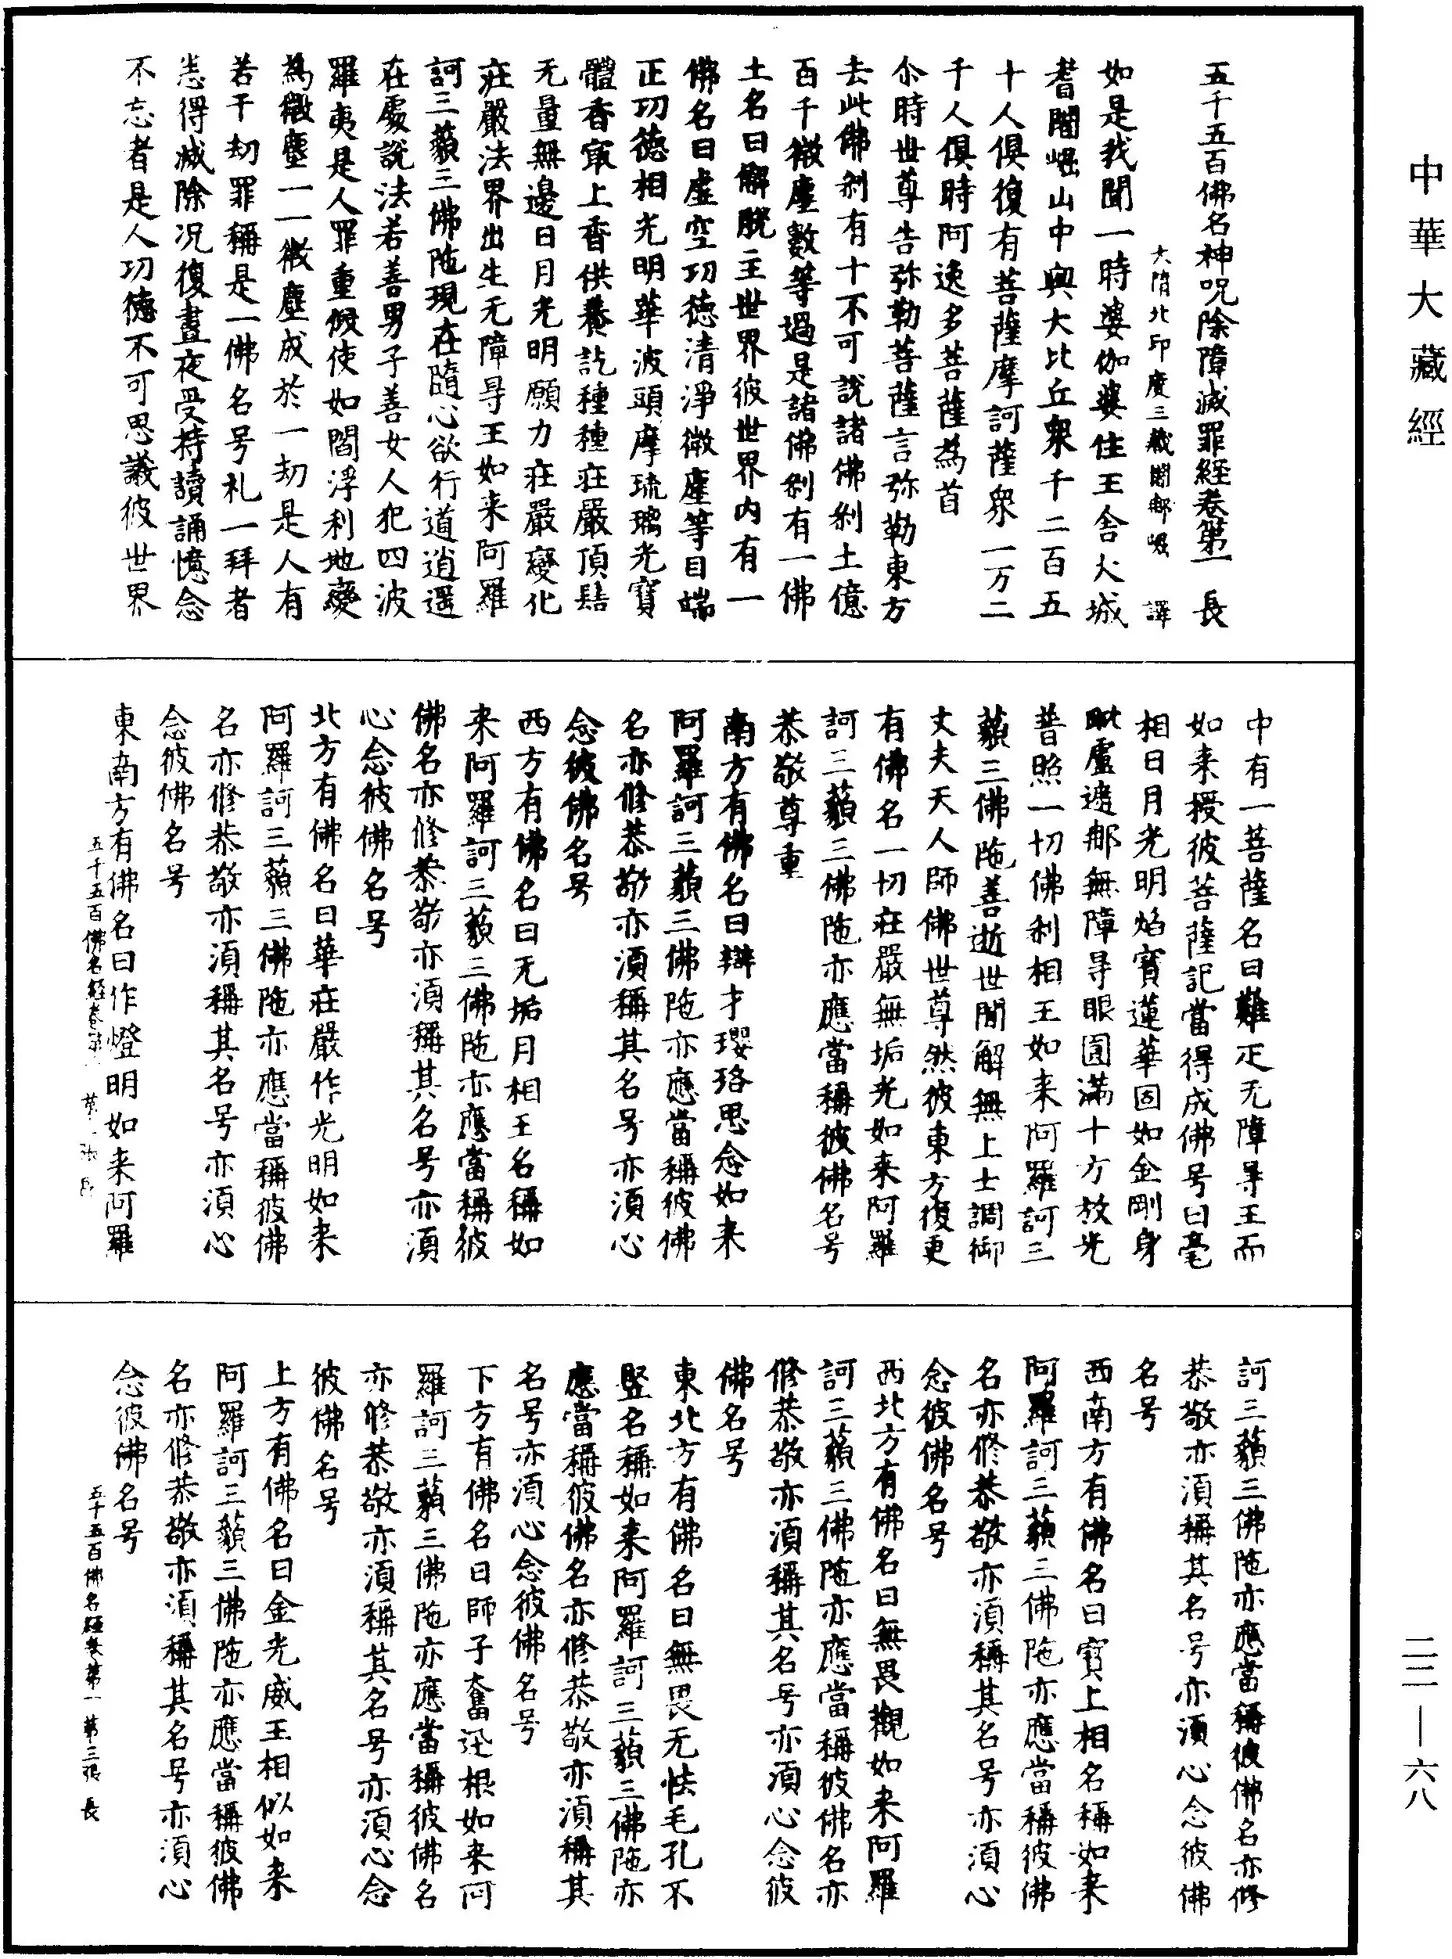 中華大藏經
五千五百佛名神呪除障滅罪經卷第一　長
大隋北印度三藏闍那崛　譯
如是我聞一時婆伽婆住王舍大城
耆闍崛山中與大比丘衆千二百五
十人俱復有菩薩摩訶薩衆一万二
千人俱時阿逸多菩薩為首
尒時世尊告弥勒菩薩言弥勒東方
去此佛刹有十不可說諸佛刹土億
百千微塵數等過是諸佛刹有一佛
土名曰解脫主世界彼世界内有一
佛名曰虛空功德清淨微塵等目端
正功德相光明華波頭摩琉璃光寶
體香㝡上香供養訖種種莊嚴頂髻
无量無邊日月光明願力莊嚴變化
莊嚴法界出生无障㝵王如来阿羅
訶三藐三佛陁現在隨心欲行道逍遥
在處說法若善男子善女人犯四波
羅夷是人罪重假使如閻浮利地變
為微塵一一微塵成於一劫是人有
若干劫罪稱是一佛名号礼一拜者
悉得滅除况復晝夜受持讀誦憶念
不忘者是人功德不可思議彼世界
中有一菩薩名曰難疋无障㝵王而
如来授彼菩薩記當得成佛号曰毫
相日月光明焰寶蓮華固如金剛身
毗盧遮那無障㝵眼圓滿十方放光
普照一切佛刹相王如来阿羅訶三
藐三佛陁善逝世間解無上士調御
丈夫天人師佛世尊然彼東方復更
有佛名一切莊嚴無垢光如来阿羅
訶三藐三佛陁亦應當稱彼佛名号
恭敬尊重
南方有佛名曰辯才瓔珞思念如来
阿羅訶三藐三佛陁亦應當稱彼佛
名亦修恭敬亦湏稱其名号亦湏心
念彼佛名号
西方有佛名曰无垢月相王名稱如
来阿羅訶三藐三佛陁亦應當稱彼
佛名亦修恭敬亦湏稱其名号亦湏
心念彼佛名号
北方有佛名曰華莊嚴作光明如来
阿羅訶三藐三佛陁亦應當稱彼佛
名亦修恭敬亦湏稱其名号亦湏心
念彼佛名号
五千五百佛名經卷第一
東南方有佛名曰作燈明如来阿羅
訶三藐三佛陁亦應當稱彼佛名亦修
恭敬亦湏稱其名号亦湏心念彼佛
名号
西南方有佛名曰寶上相名稱如来
阿羅訶三藐三佛陁亦應當稱彼佛
名亦修恭敬亦湏稱其名号亦湏心
念彼佛名号
西北方有佛名曰無畏觀如来阿羅
訶三藐三佛陁亦應當稱彼佛名亦
修恭敬亦湏稱其名号亦湏心念彼
佛名号
東北方有佛名曰無畏无怯毛孔不
竪名稱如来阿羅訶三藐三佛陁亦
應當稱彼佛名亦修恭敬亦湏稱其
名号亦湏心念彼佛名号
下方有佛名曰師子奮迅根如来阿
羅訶三藐三佛陁亦應當稱彼佛名
亦修恭敬亦湏稱其名号亦湏心念
彼佛名号
上方有佛名曰金光威王相似如来
阿羅訶三藐三佛陁亦應當稱彼佛
名亦修恭敬亦湏稱其名号亦湏心
念彼佛名号
五千五百佛名經卷第一　第三張　長
二二—六八